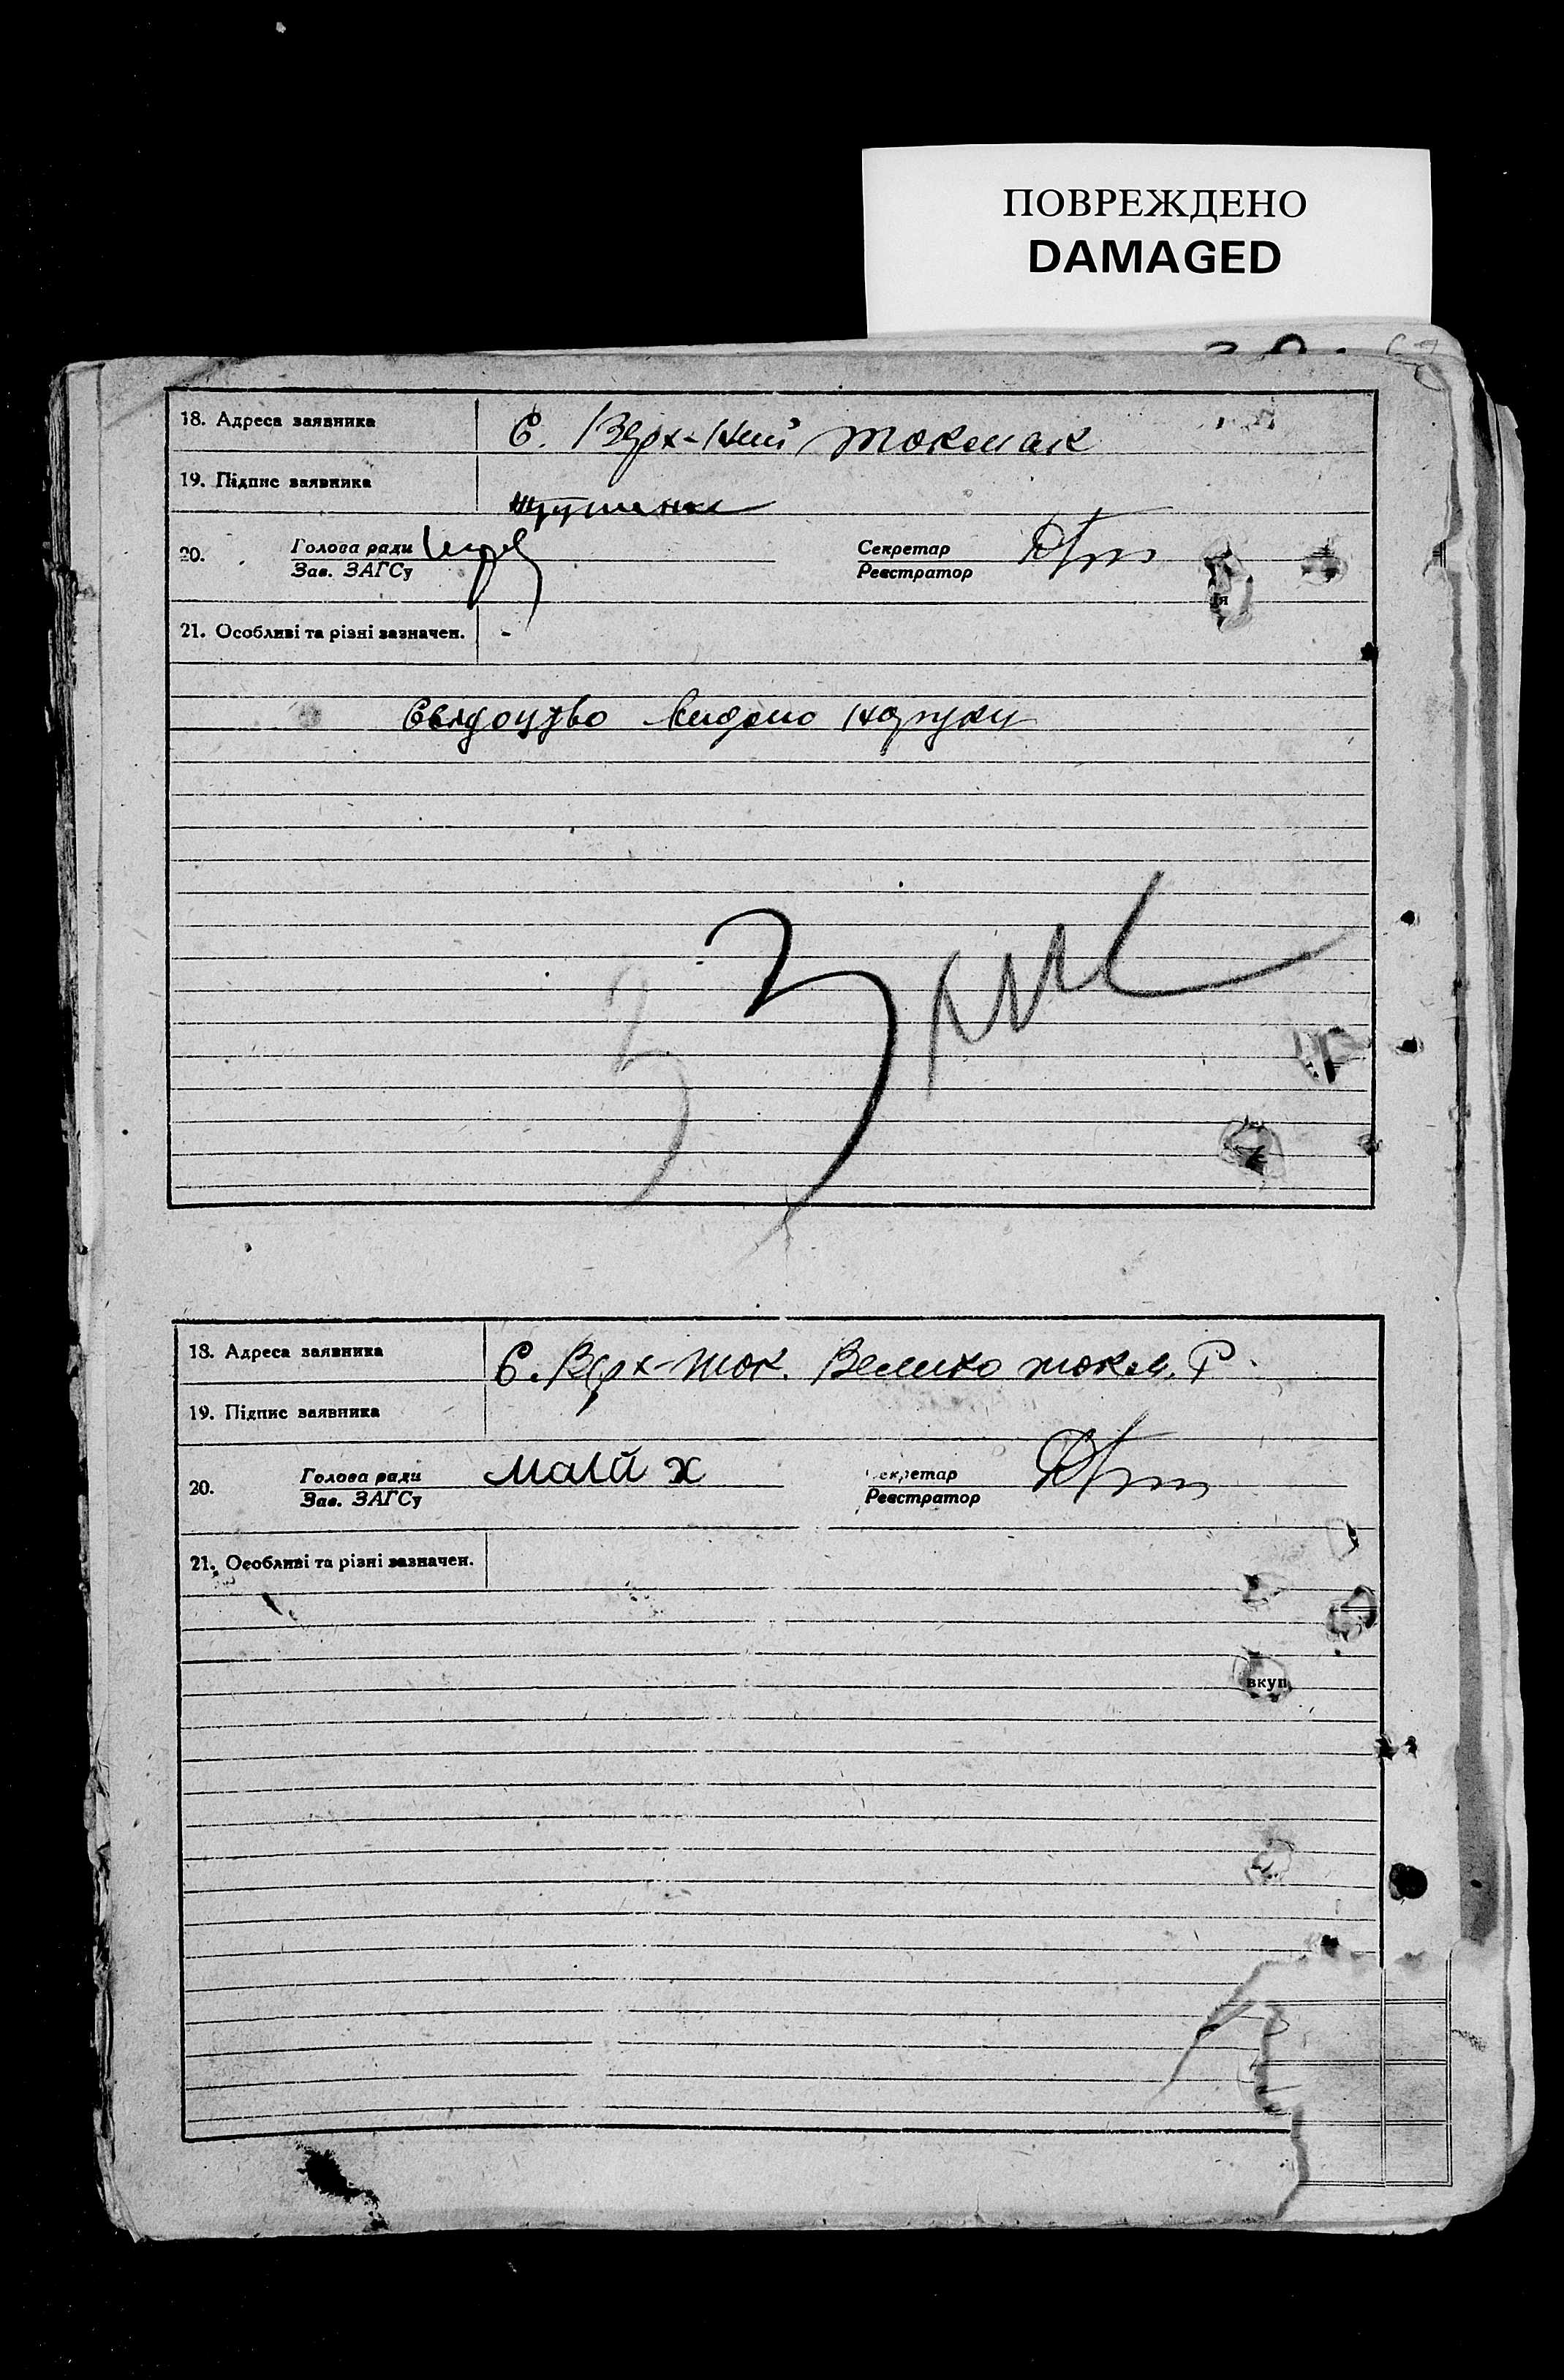 ПОВРЕЖДЕНО
DAMAGED
18. Адреса заявника С. Верх-ний токмак
19. Підпис заявника
20. Голова ради Секретар
Зав. ЗАГСу Реєстратор
21. Особливі та різні зазначен. -
Свядоцтво видано наруки
18. Адреса заявника С. Верх-Ток. Велико токм. Р.
19. Підпис заявника
20. Голова ради Секретар
Зав. ЗАГСу Реєстратор
21. Особливі та різні зазначен.
вкуп